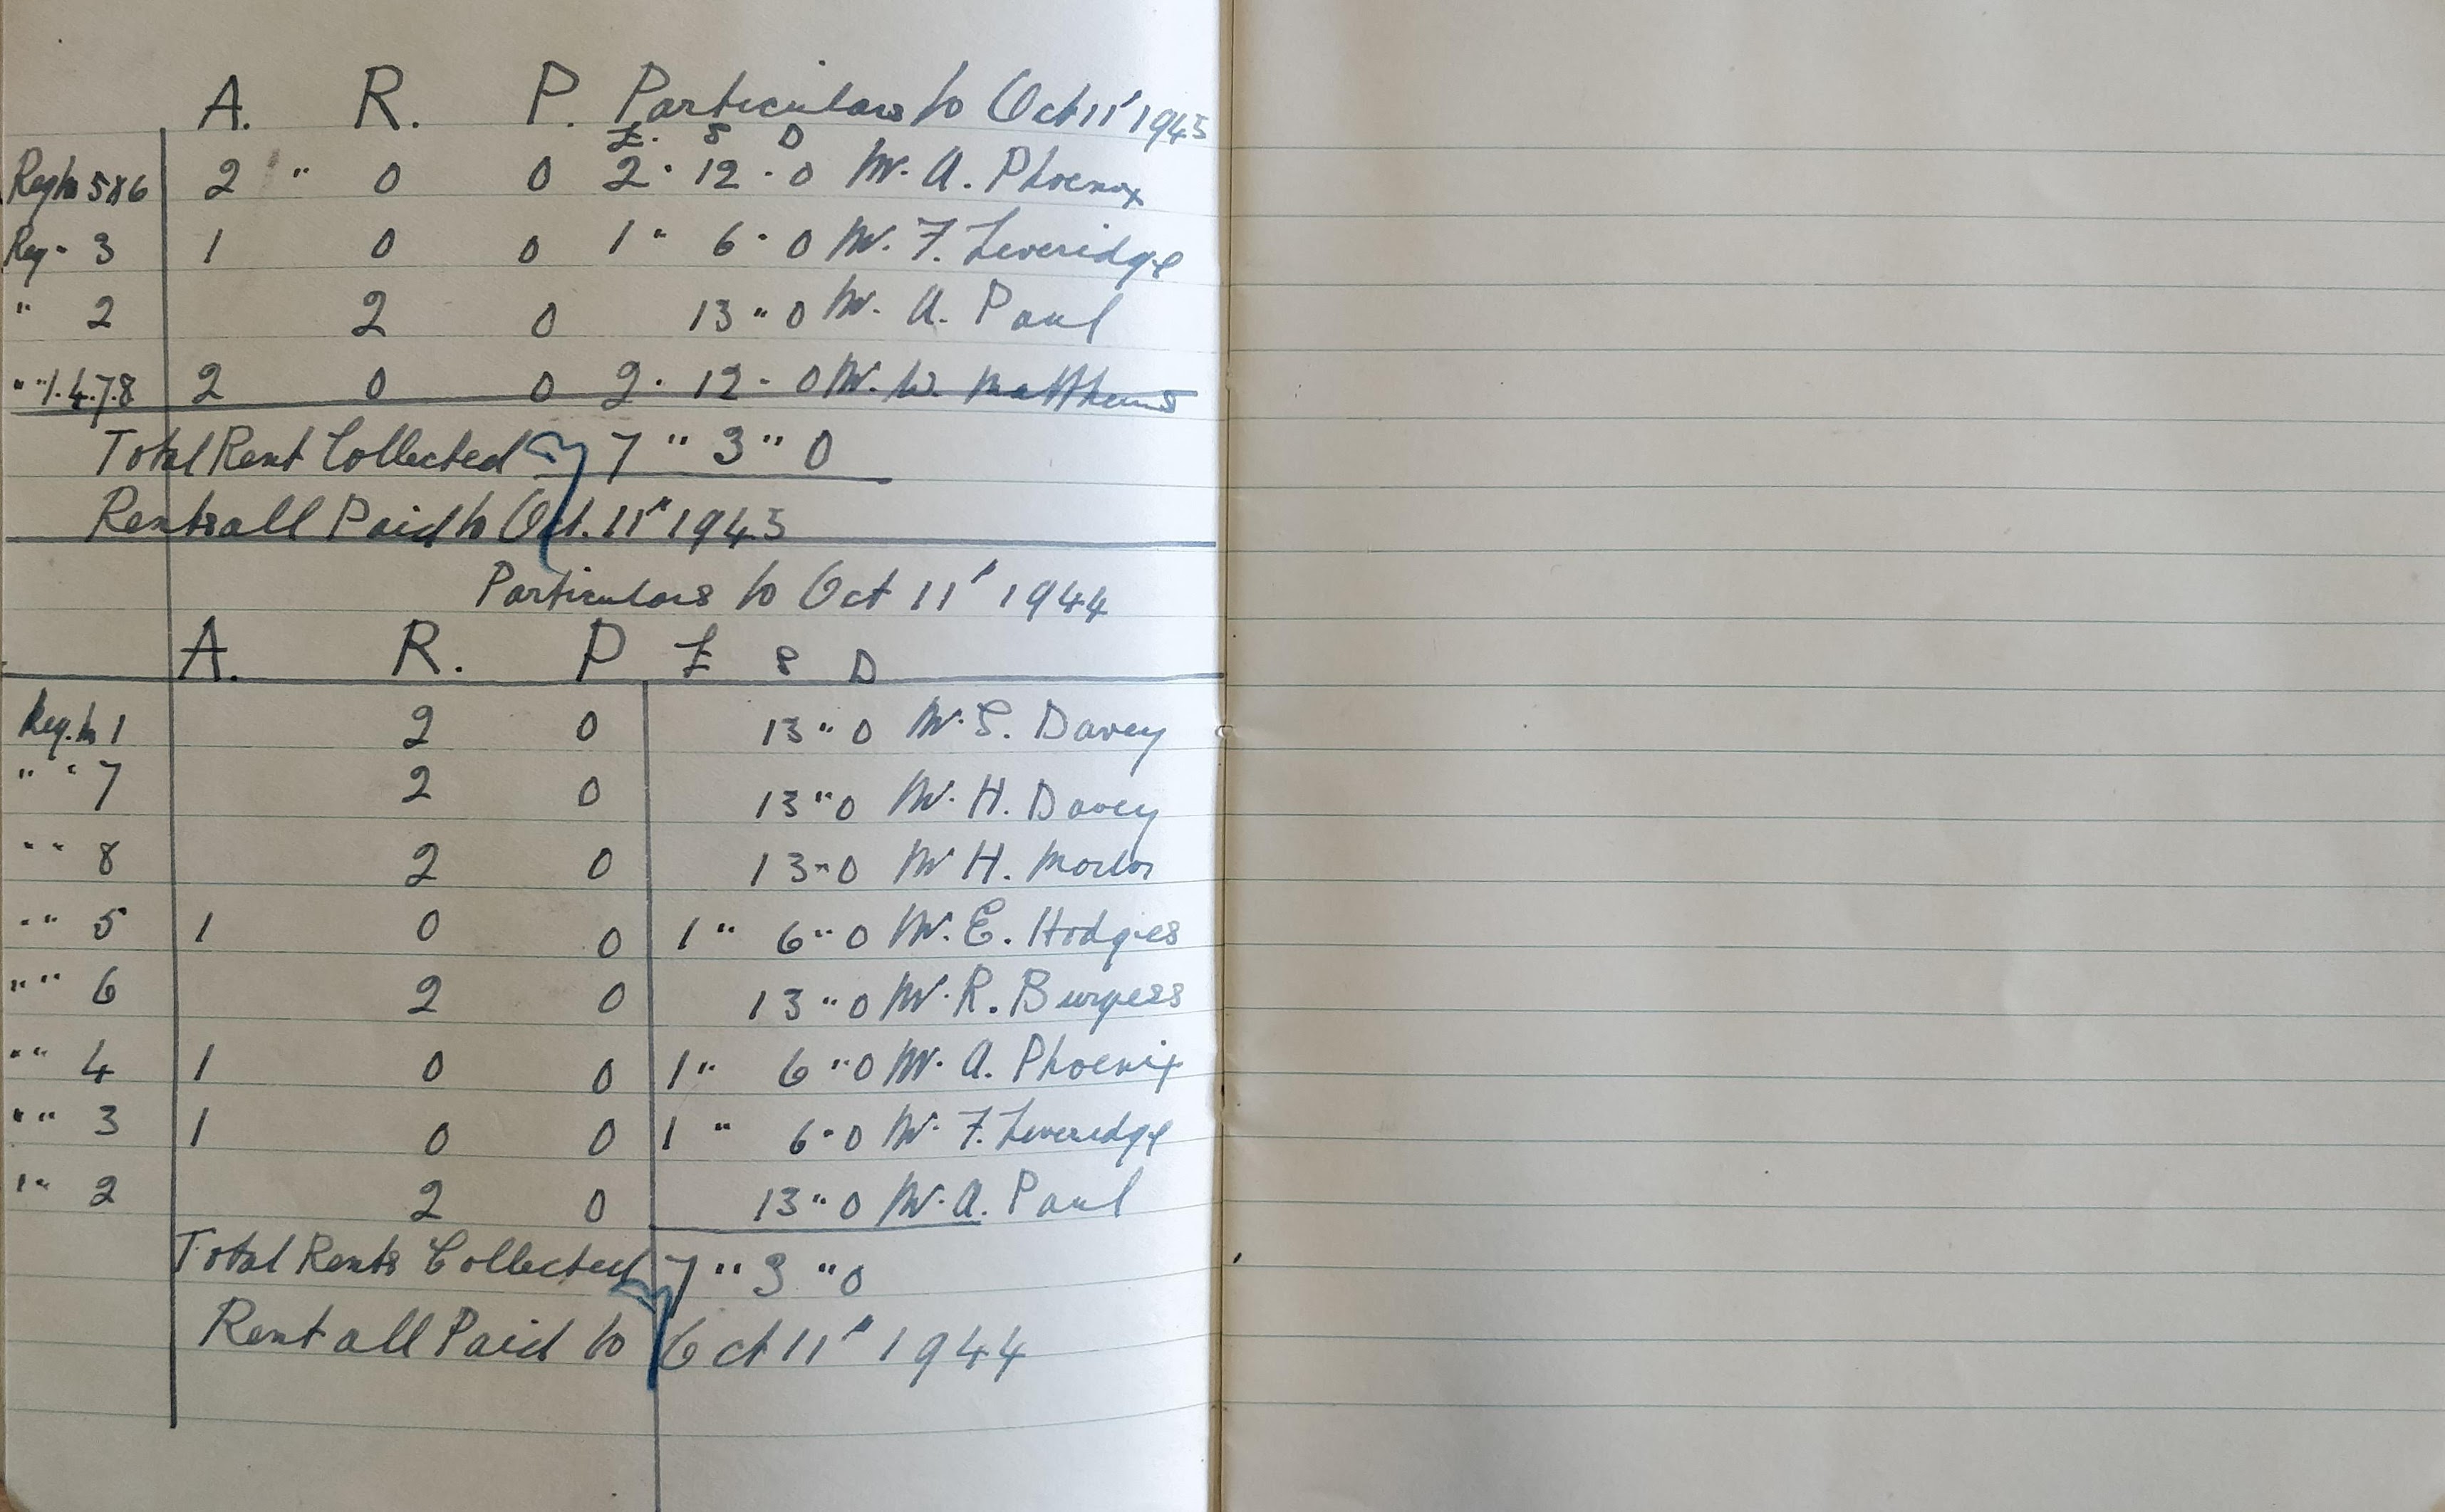 A. R. P. Particulars to Oct 11" 1943
£. S D
Reg No 5&6 2 " 0 0 2 · 12 · 0 Mr. A. Phoenix
Reg " 3 1 0 0 1 " 6 · 0 Mr. F. Leveridge
" 2 2 0 13 " 0 Mr. A. Paul
" " 1.4.7.8 2 0 0 2 · 12 · 0 Mr. W. Matthews
Total Rent Collected 7 " 3 " 0
Rents all Paid to Oct. 11" 1943
Particulars to Oct 11" 1944
A. R. P £ S D
Reg. No 1 2 0 13 " 0 Mr. S. Davey
" " 7 2 0 13 " 0 Mr. H. Davey
" " 8 2 0 13 " 0 Mr H.
" " 5 1 0 0 1 " 6 " 0 Mr. E. Hodges
" " 6 2 0 13 " 0 Mr. R. Burgess
" " 4 1 0 0 1 " 6 " 0 Mr. A. Phoenix
" " 3 1 0 0 1 " 6 · 0 Mr. F. Leveridge
" " 2 2 0 13 " 0 Mr. A. Paul
Total Rents Collected 7 " 3 " 0
Rent all Paid to Oct 11" 1944